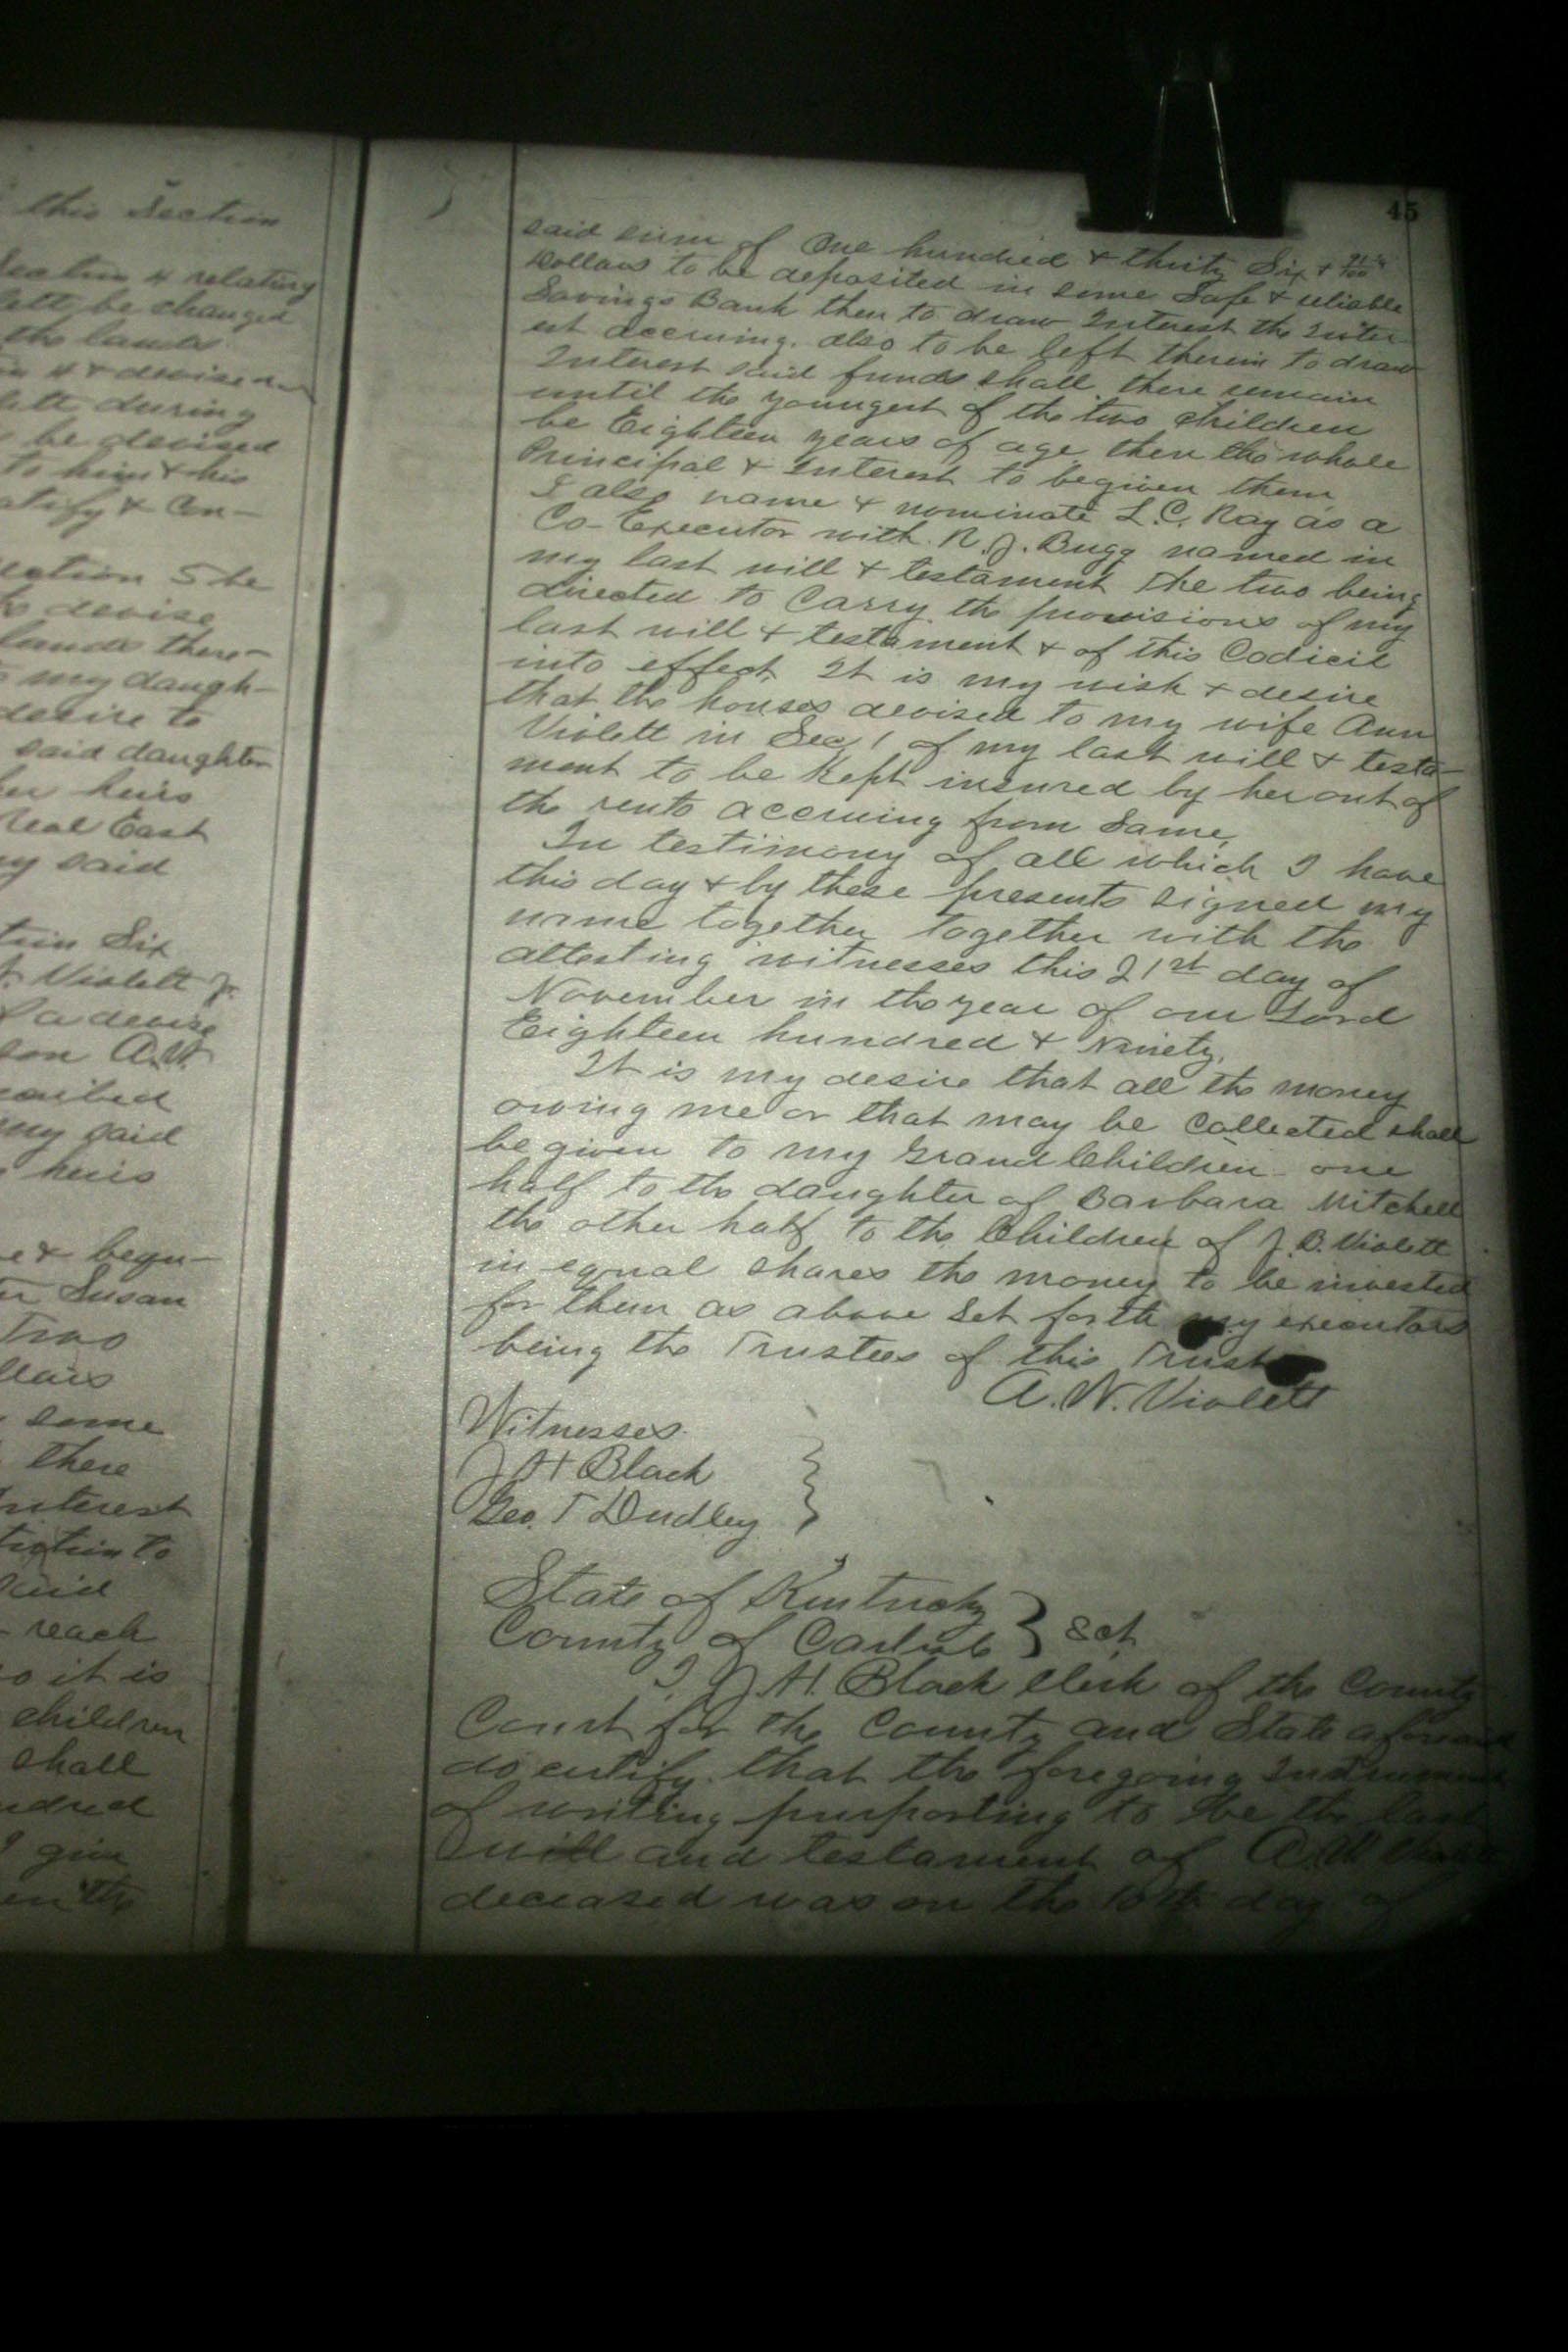 this Section
Section 4 relating
be changed
the lands
during
be devised
to him & his
ratify & Con-
Section 5 be
to devise
lands there-
my daugh-
desire to
said daughter
her heirs
Real East
my said
Six
Violett Jr
a devise
son A.W.
my said
heirs
& bequ-
Susan
Two
some
there
Interest
to
said
reach
so it is
children
shall
hundred
I give
the
45
said sum of One hundred & thirty Six &
Dollars to be deposited in some Safe & reliable
Savings Bank then to draw Interest the Inter-
est accruing also to be left therein to draw
Interest said funds shall there remain
until the youngest of the two children
be Eighteen years of age then the whole
Principal & Interest to be given them
I also name & nominate L.C. Ray as a
Co-Executor with R.J. Bugg named in
my last will & testament The two being
directed to Carry the provisions of my
last will & testament & of this Codicil
into effect It is my wish & desire
that the houses devised to my wife Ann
Violett in Sec 1 of my last will & testa-
ment to be Kept insured by her out of
the rents accruing from Same,
In testimony of all which I have
this day & by these presents signed my
name together together with the
attesting witnesses this 21st day of
November in the year of our Lord
Eighteen hundred & Ninety.
It is my desire that all the money
owing me or that may be Collected shall
be given to my Grand Children one
half to the daughter of Barbara Mitchell
the other half to the Children of J.B. Violett
in equal shares the money to be invested
for them as above Set forth my executors
being the Trustees of this Trust
A.W. Violett
Witnesses
J H Black
Geo. T Dudley
State of Kentucky
County of Carlisle } Sct
I J.H. Black Clerk of the County
Court for the County and State aforesaid
do certify that the foregoing Instrument
of writing purporting to be the last
will and testament of A.W. Violett
deceased was on the 10th day of